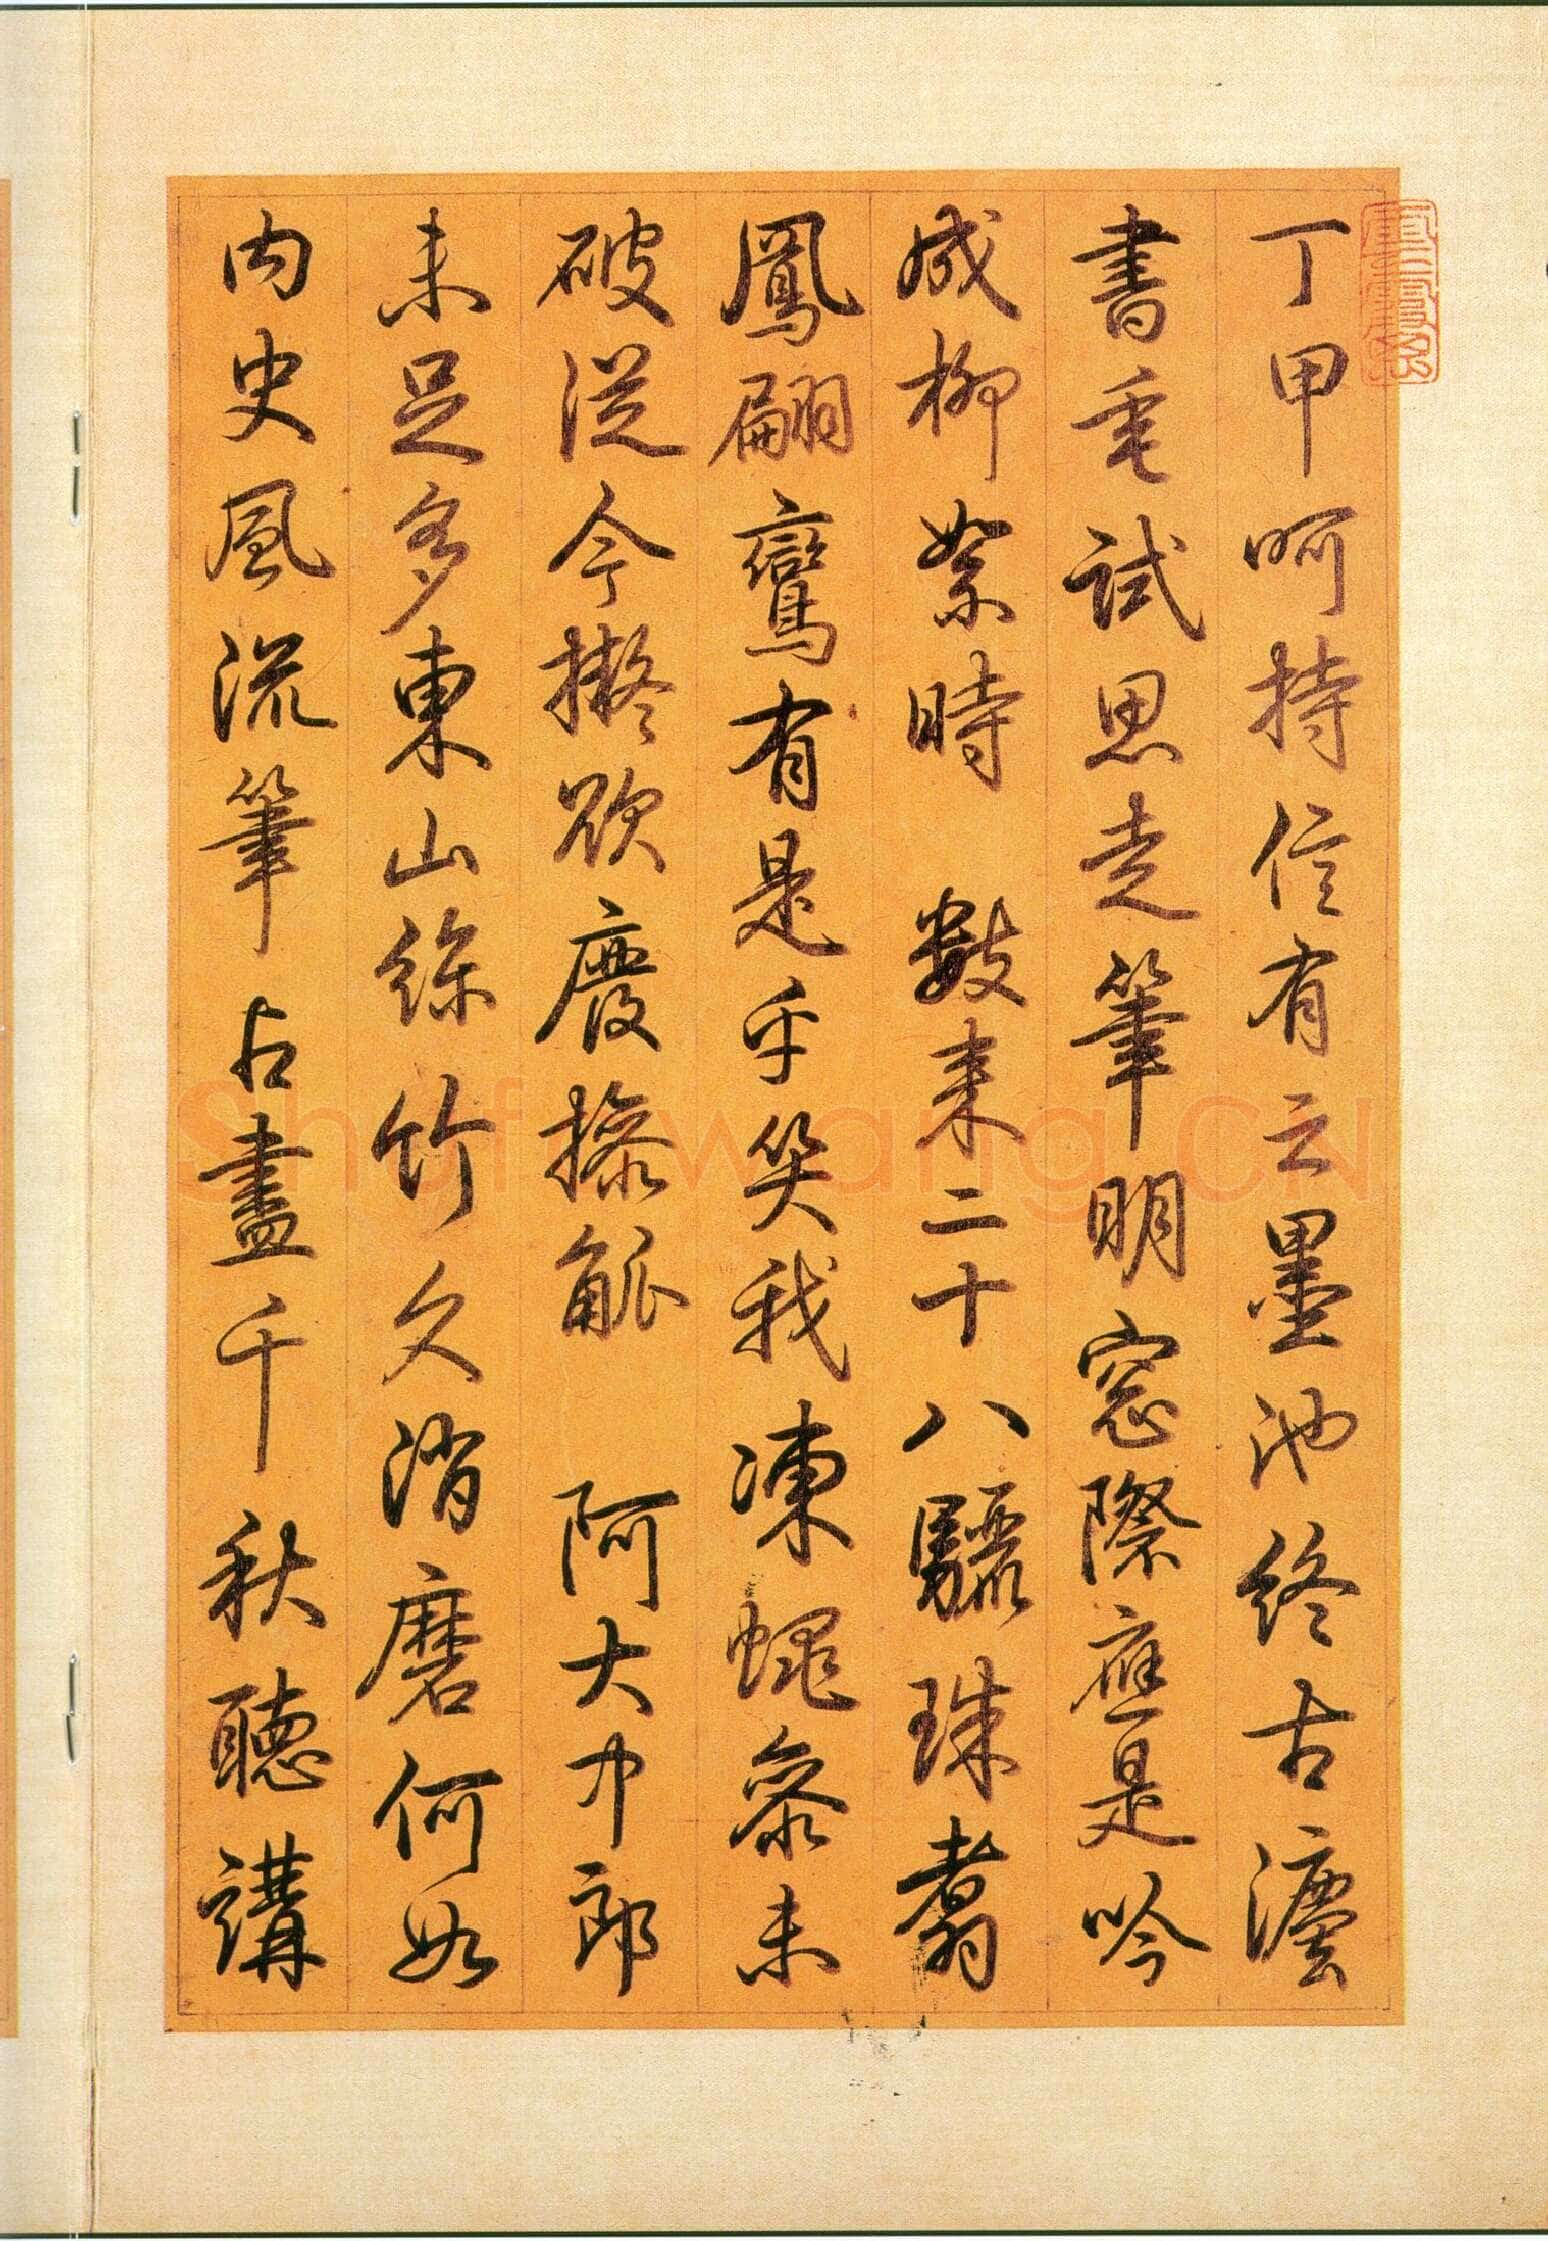 丁甲呵持信有云墨池終古瀍
書重試思走筆明窓際應是吟
成柳絮時 數來二十八驪珠翥
鳳翩鸞有是乎笑我凍蠅參未
破從今擬欲廢操觚 阿大中郎
未足多東山絲竹久消磨何如
内史風流筆占盡千秋聽講